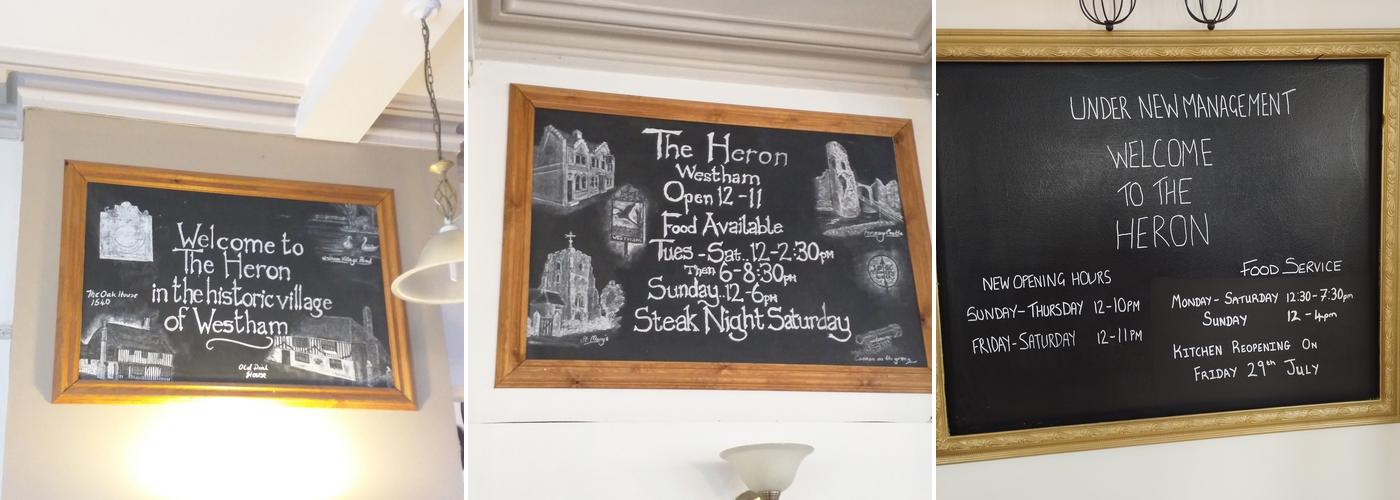 Welcome to
The Heron
in the historic village
of Westham
The Oak House
1540
Westham Village Pond
Old Dial
House
The Heron
Westham
Open 12-11
Food Available
Tues-Sat..12-2:30pm
Then 6-8:30pm
Sunday..12-6pm
Steak Night Saturday
St Mary's
Pevensey Castle
Cannon on the green
UNDER NEW MANAGEMENT
WELCOME
TO THE
HERON
NEW OPENING HOURS
SUNDAY-THURSDAY 12-10PM
FRIDAY-SATURDAY 12-11PM
FOOD SERVICE
MONDAY-SATURDAY 12:30-7:30pm
SUNDAY 12-4pm
KITCHEN REOPENING ON
FRIDAY 29th JULY